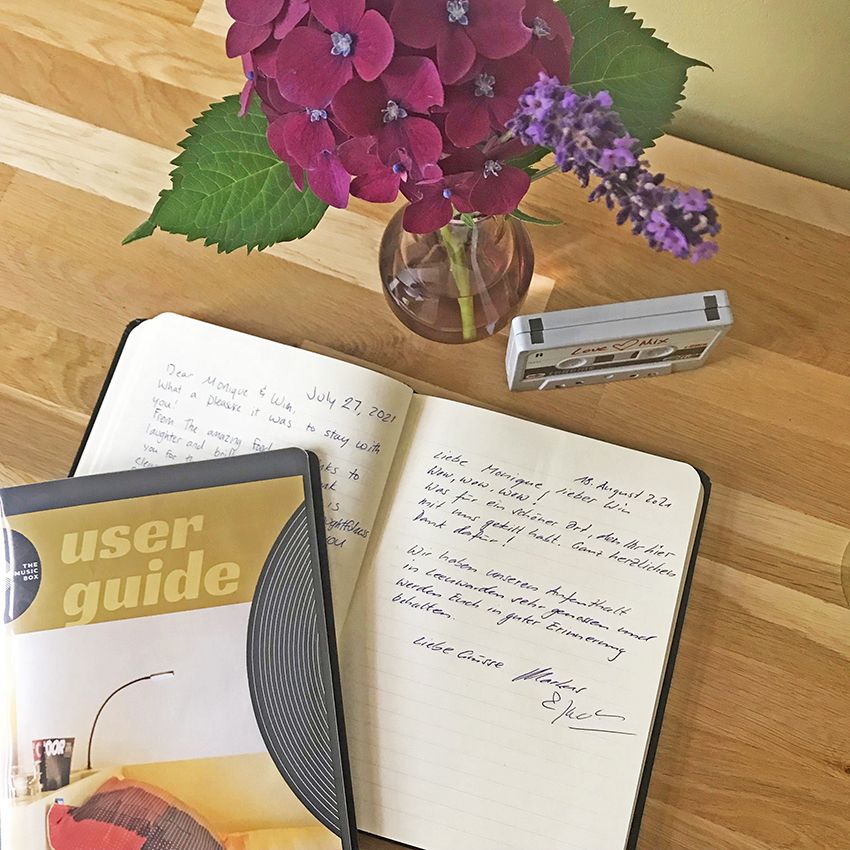 Love ♡ Mix
July 27, 2021
Dear Monique & Wim,
What a pleasure it was to stay with
you!
From the amazing food
laughter and
you for the
to
YOU
18. August 2021
Liebe Monique, lieber Wim
Wow, wow, wow!
Was für ein schöner Ort, den Ihr hier
mit uns geteilt habt. Ganz herzlichen
Dank dafür!
Wir haben unseren Aufenthalt
in Leeuwarden sehr genossen und
werden Euch in guter Erinnerung
behalten.
Liebe Grüsse Markus
&
user
guide
THE
MUSIC
BOX